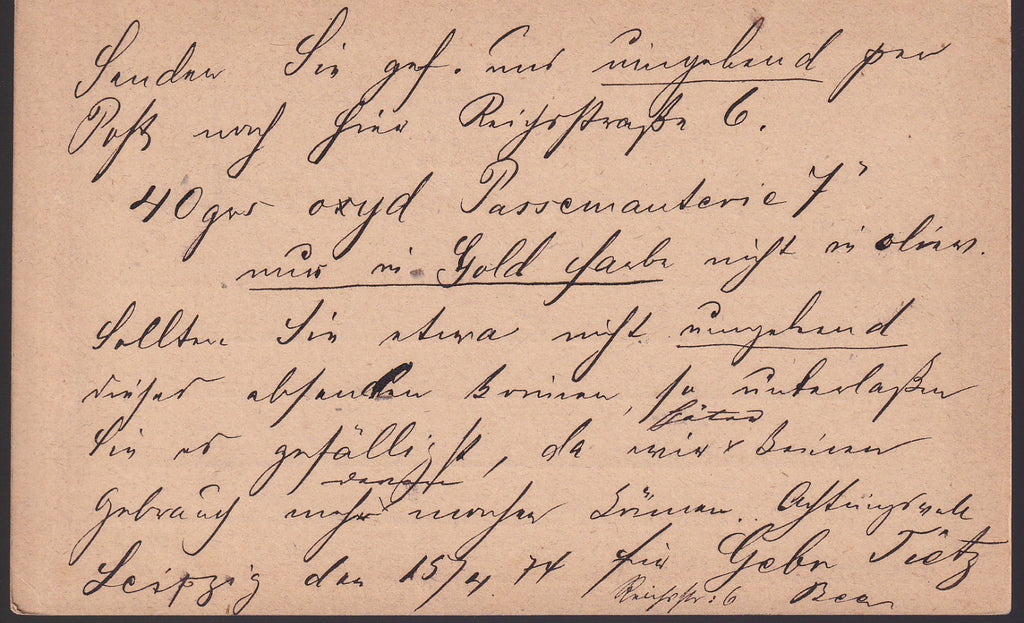 Senden Sie gef. uns umgehend per
Post nach hier Reichsstraße 6.
40 grs oxyd Passemanterie 7"
nur in Gold farbe nicht in oliv.
Sollten Sie etwa nicht umgehend
dieses absenden können, so unterlaßen
später
Sie es gefälligst, da wir keinen
davon
Gebrauch mehr machen können. Achtungsvoll
Leipzig den 15/4 74 für Gebr Tietz
Reichsstr: 6